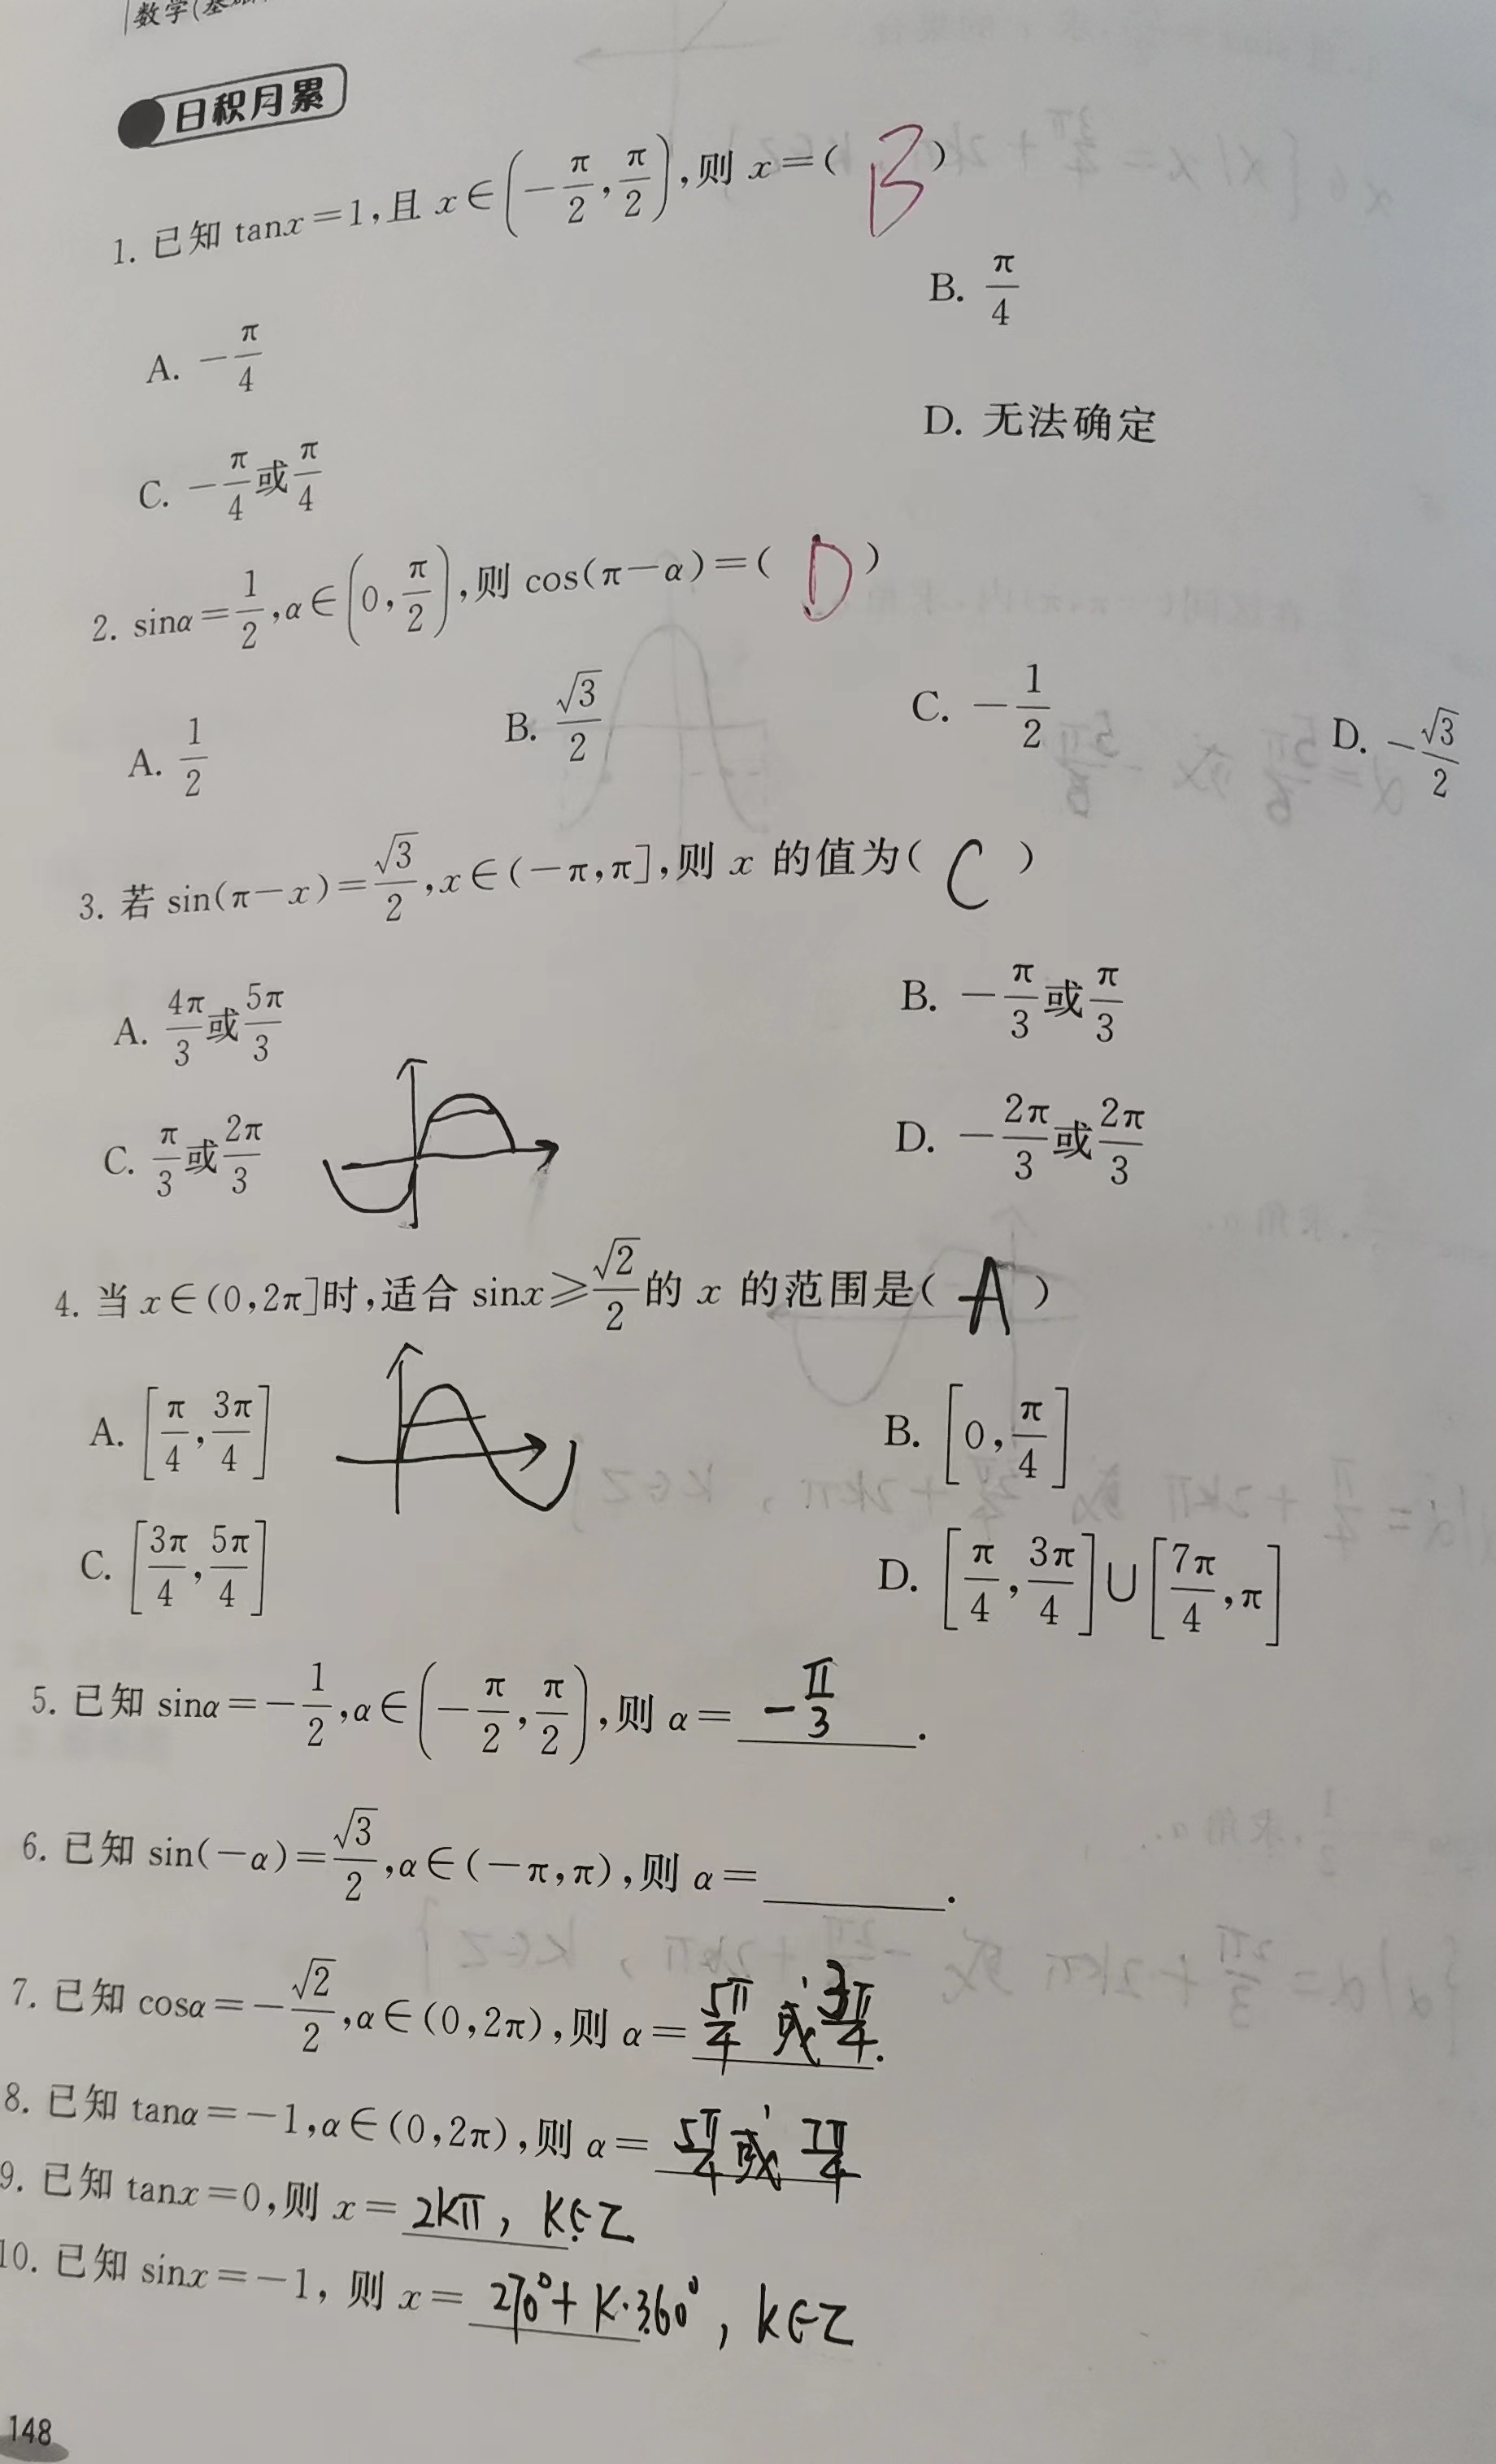 数学(基础
日积月累
1. 已知 tanx=1,且 x∈(-π/2,π/2),则 x=( B )
A. -π/4 B. π/4
C. -π/4或π/4 D. 无法确定
2. sinα=1/2,α∈(0,π/2),则 cos(π-α)=( D )
A. 1/2 B. √3/2 C. -1/2 D. -√3/2
3. 若 sin(π-x)=√3/2,x∈(-π,π],则 x 的值为( C )
A. 4π/3或5π/3 B. -π/3或π/3
C. π/3或2π/3 D. -2π/3或2π/3
4. 当 x∈(0,2π]时,适合 sinx≥√2/2的 x 的范围是( A )
A. [π/4,3π/4] B. [0,π/4]
C. [3π/4,5π/4] D. [π/4,3π/4]∪[7π/4,π]
5. 已知 sinα=-1/2,α∈(-π/2,π/2),则 α= -π/3 .
6. 已知 sin(-α)=√3/2,α∈(-π,π),则 α=______.
7. 已知 cosα=-√2/2,α∈(0,2π),则 α= 5π/4 或 3π/4 .
8. 已知 tanα=-1,α∈(0,2π),则 α= 5π/4 或 7π/4
9. 已知 tanx=0,则 x= 2kπ, k∈Z.
10. 已知 sinx=-1, 则 x= 270°+k·360°, k∈Z
148